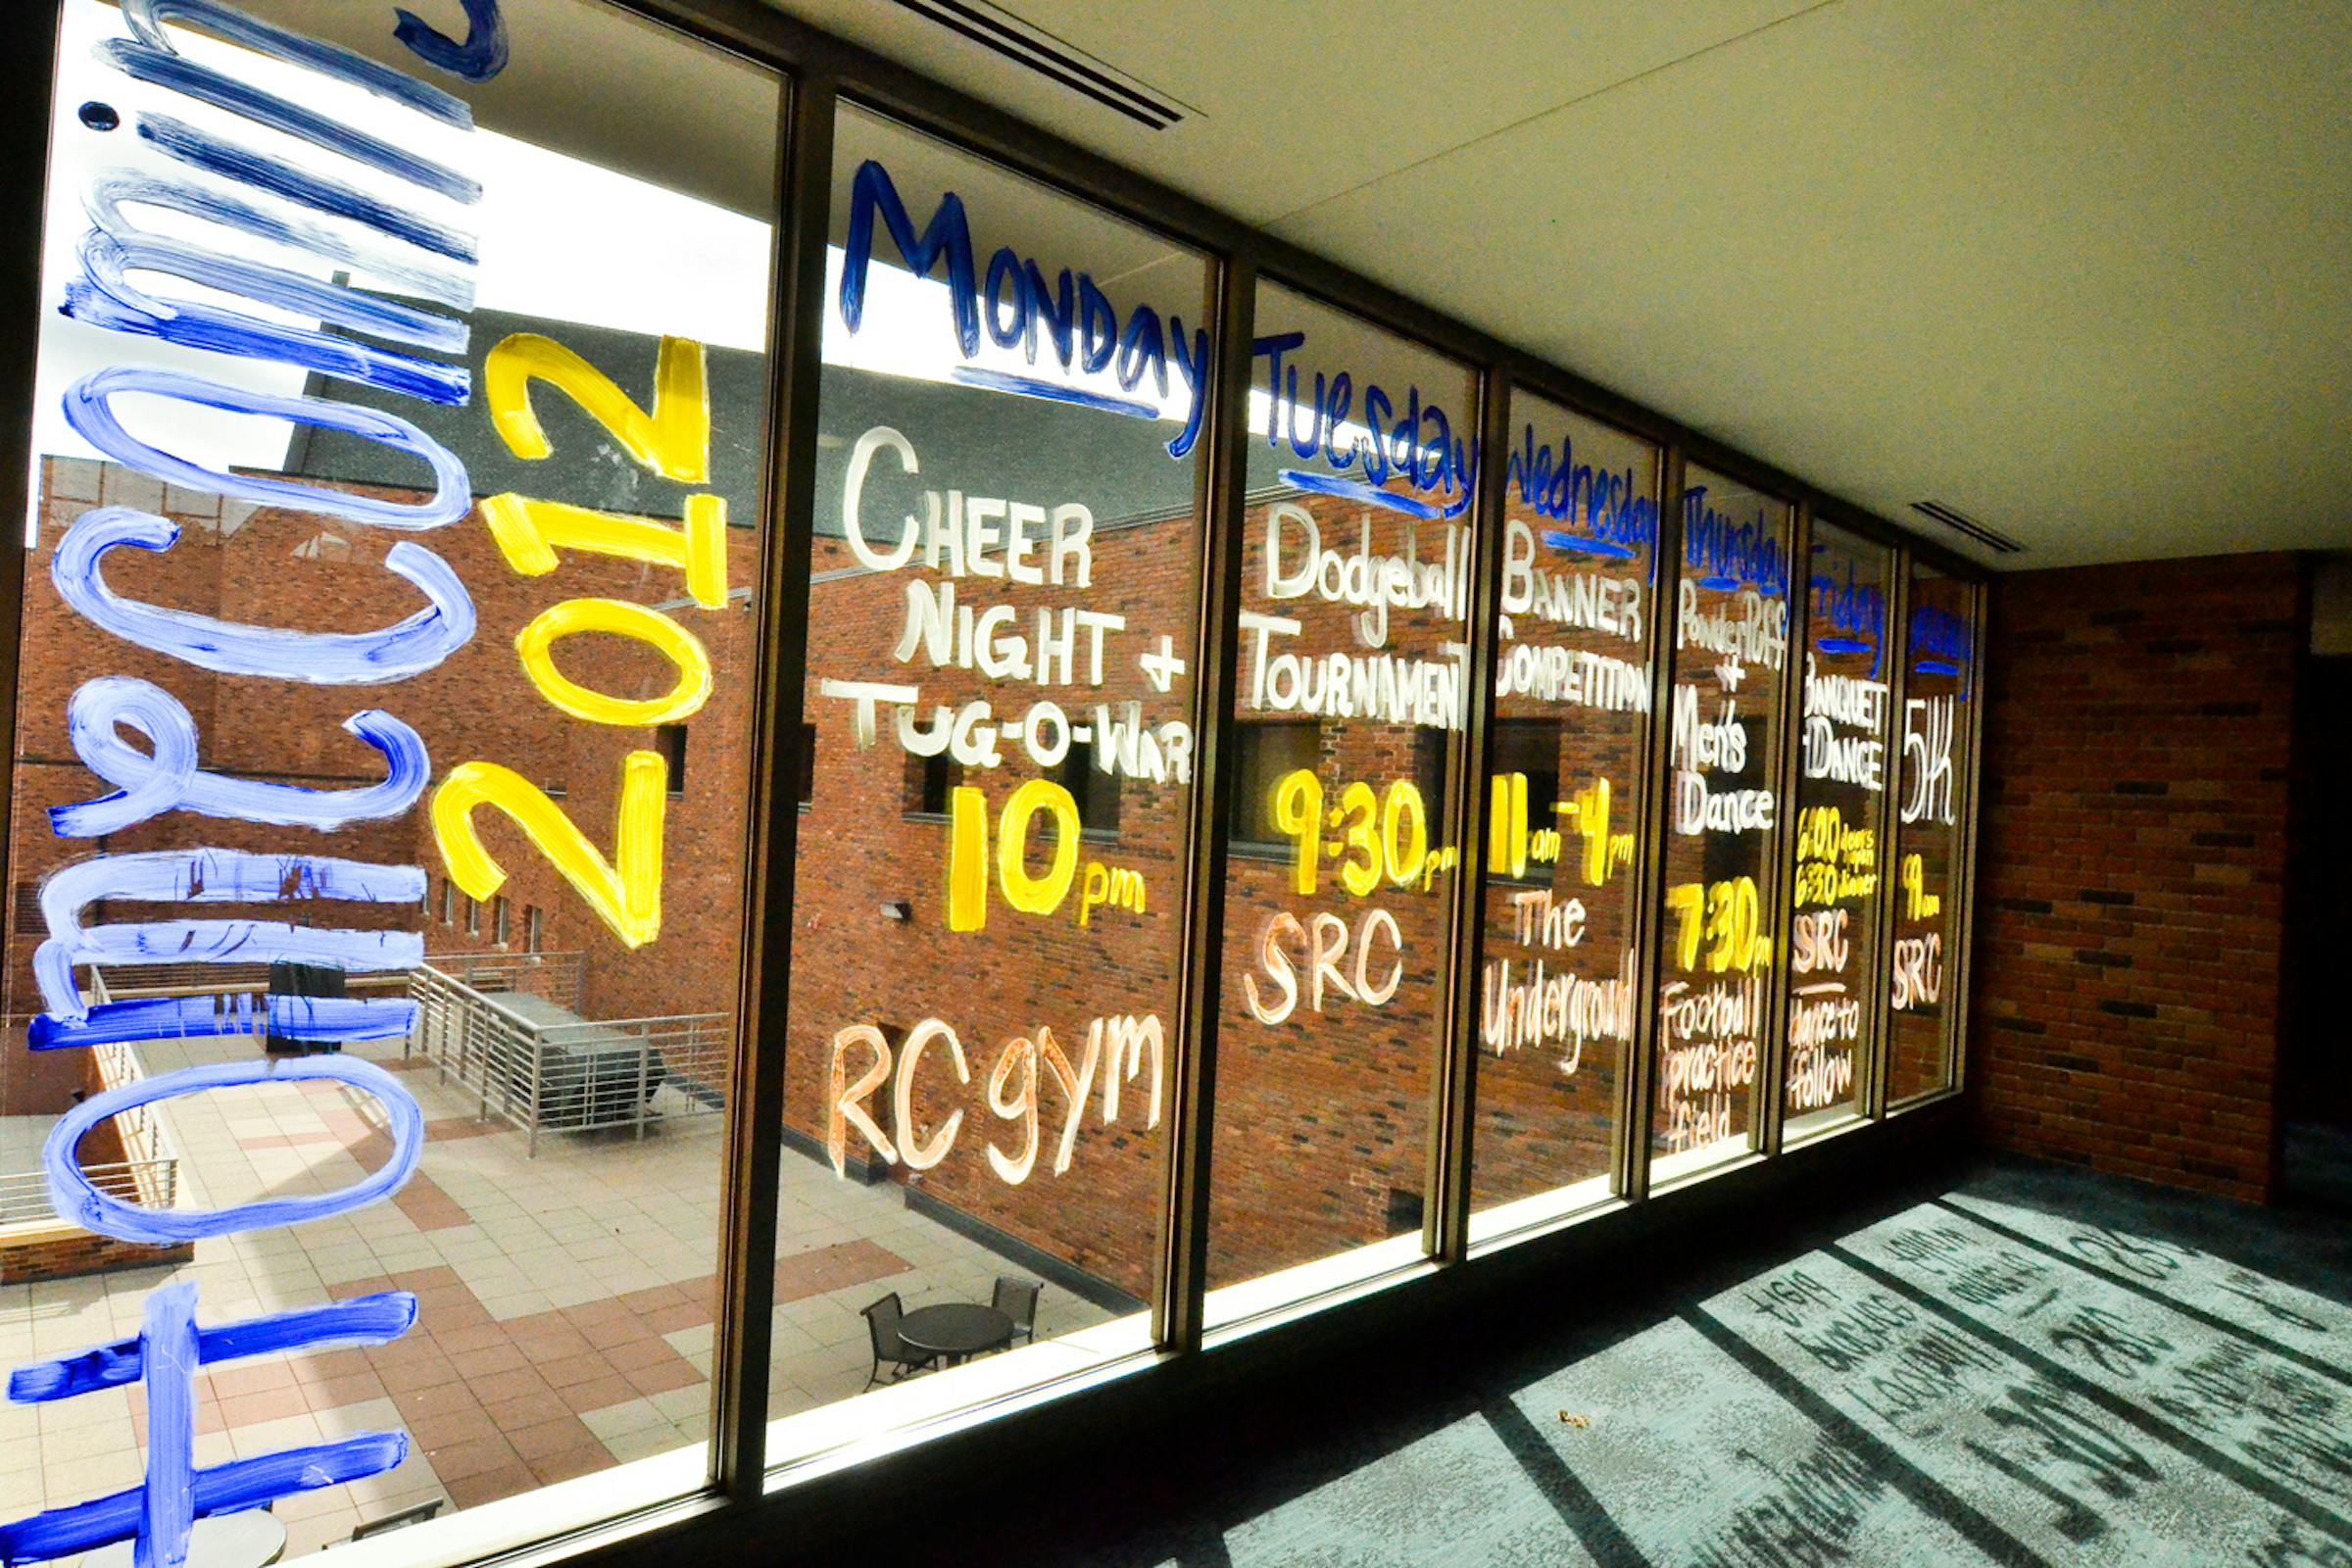 Homecoming
2012
Monday
CHEER
NIGHT +
TUG-O-WAR
10 pm
RC gym
Tuesday
Dodgeball
TOURNAMENT
9:30 pm
SRC
Wednesday
BANNER
COMPETITION
11 am - 4 pm
The
Underground
Thursday
PowderPuff
+
Men's
Dance
7:30 pm
Football
practice
field
Friday
BANQUET
+ DANCE
6:00 doors open
6:30 dinner
SRC
dance to
follow
5K
9 am
SRC